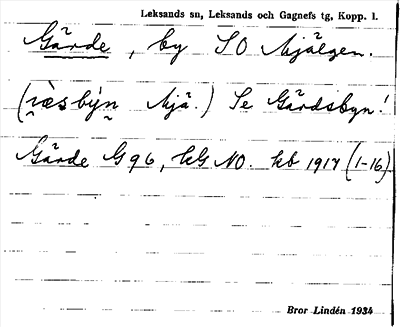 Leksands sn, Leksands och Gagnefs tg, Kopp. l.
Gärde, by SO Mjälgen.
Mjä.) Se Gärdsbyn!
Gärde G 96, LG NO. kb 1917 (1-16)
Bror Lindén 1934